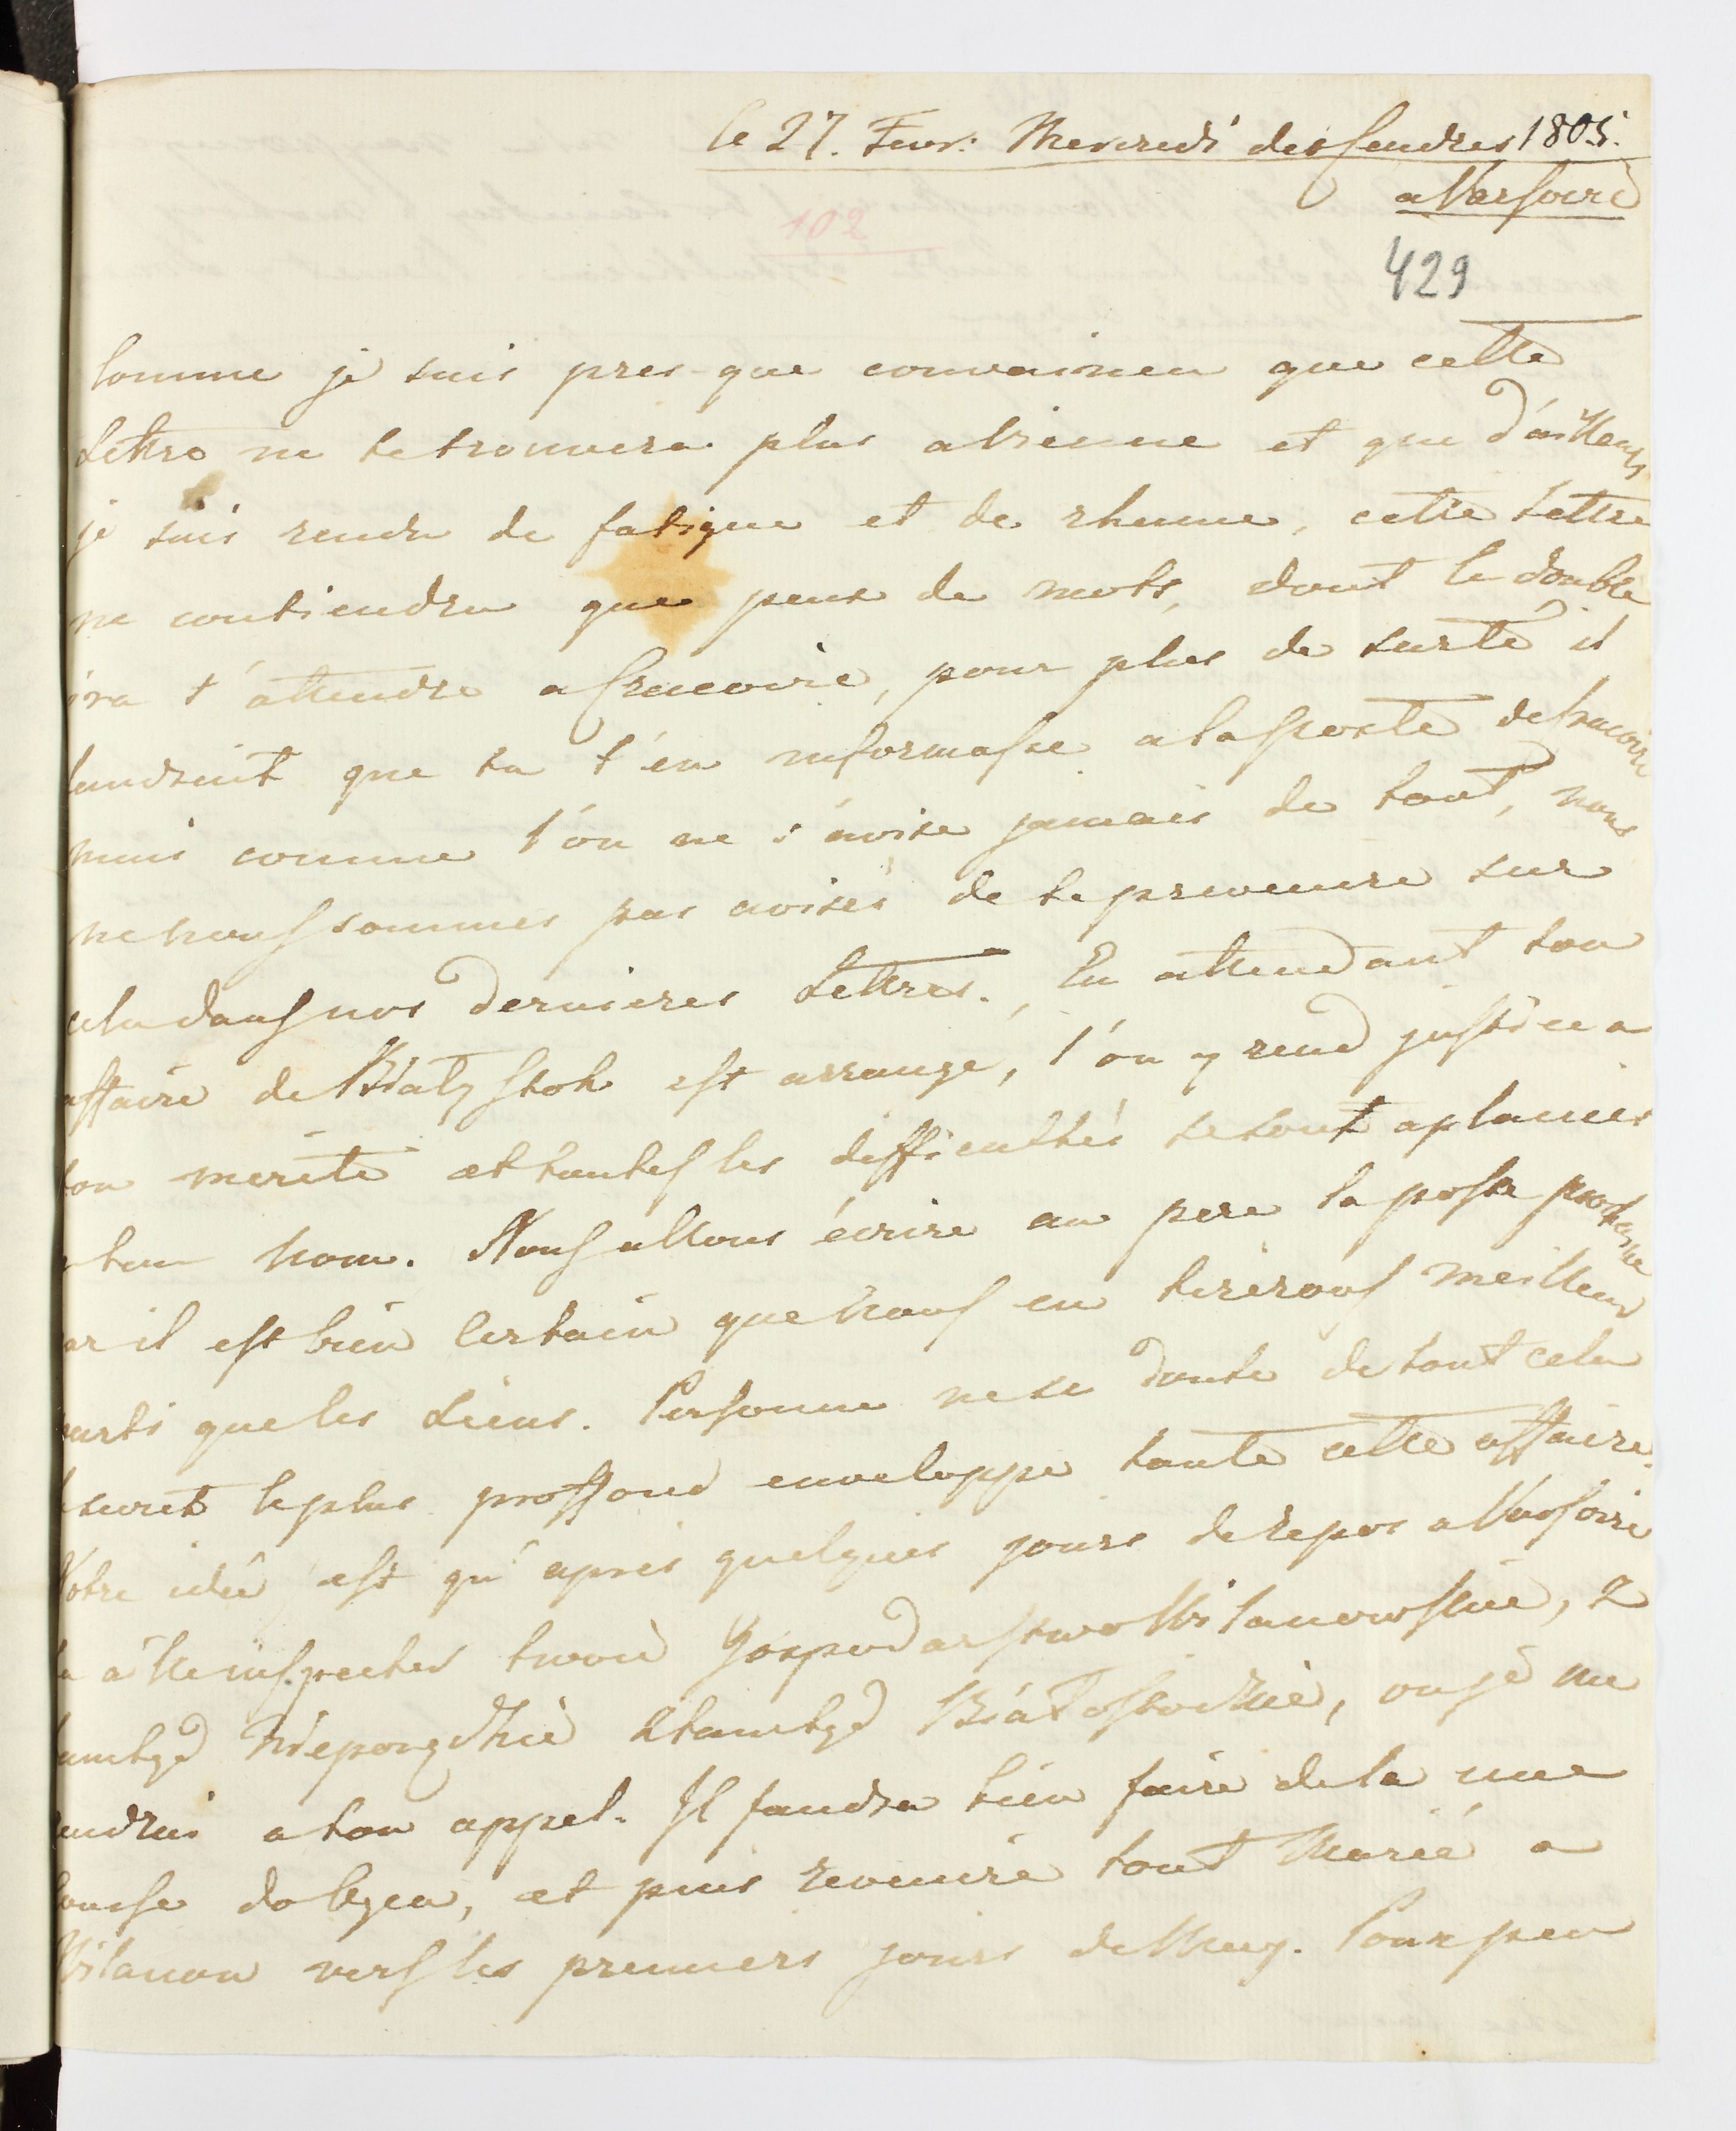 le 27. Fevr: Mercredi des Cendres 1805.
a Varsovie
102
429
Comme je suis pres-que convaincu que cette
Lettre ne te trouvera plus a Vienne et que d'ailleurs
je suis rendu de fatigue et de rhume, cette Lettre
ne contiendra que peux de mots, dont le double
ira t'attendre a Cracovie, pour plus de surté il
faudrait que tu t'en informasse a la poste de Cracovie
mais comme l'on ne s'avise jamais de tout, nous
ne nous sommes pas avisés de te prevenire sur
cela dans nos dernieres Lettres. En attendant ton
affaire de Białystok est arrangé, l'on y rend justice a
ton merite et toutes les difficultés se sont aplanies
a ton nom. Nous allons écrire au pere la poste prochaine
car il est bien certain que nous en tirerons meilleur
parti que les siens. Personne ne se doute de tout cela
secret le plus proffond enveloppe toute cette affaire.
Notre idée est qu'apres quelques jours de repos a Varsovie
tu aille inspecter twoie Gospodarstwo Wilanowskie, z
tamtąd Nieporęckie z tamtąd Białostockie, ou je me
rendrai a ton appel. Il faudra bien faire de la une
course do Łęzca, et puis revenire tout Marié a
Wilanow vers les premiers jours de May. Pour peu